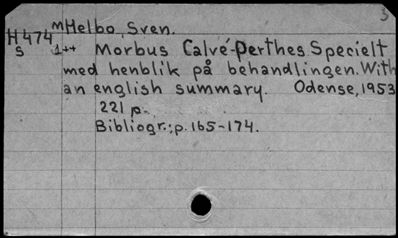 3
M Helbo, Sven.
H474 1++ Morbus Calvé-Perthes Specielt
S med henblik på behandlingen. With
an english summary. Odense, 1953
221 p.
Bibliogr.; p. 165-174.